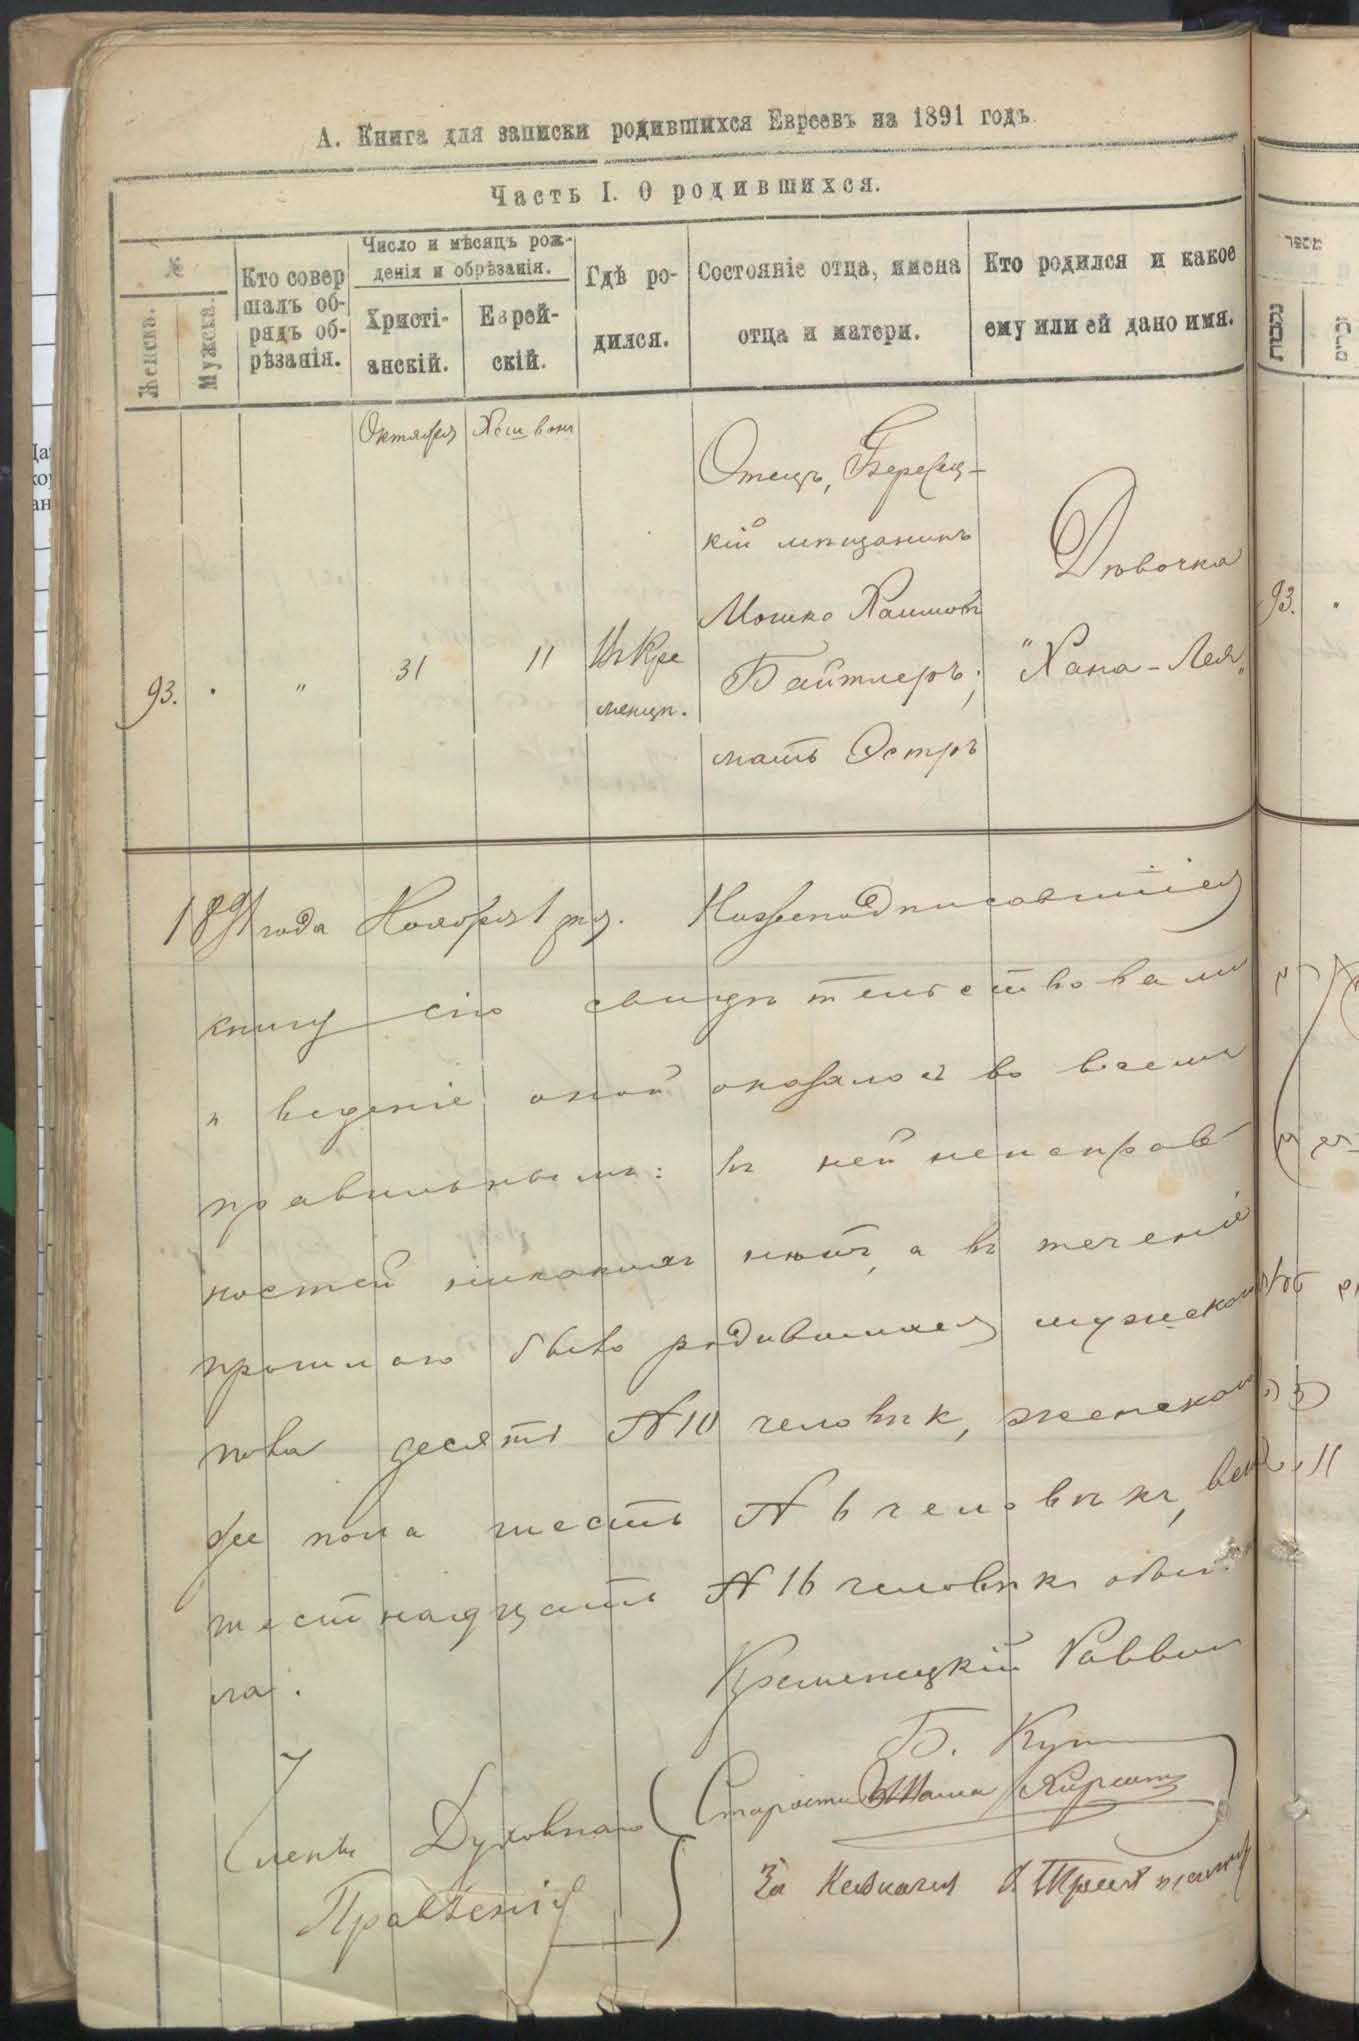 А. Книга для записки родившихся Евреевъ на 1891 годъ
Часть I. О родившихся.
№
Женска.
Мужска.
Кто совер
шалъ об-
рядъ об-
рѣзанія.
Число и мѣсяцъ рож-
денія и обрѣзанія.
Христі-
анскій.
Еврей-
скій.
Гдѣ ро-
дился.
Состояніе отца, имена
отца и матери.
Кто родился и какое
ему или ей дано имя.
Октября
Хешвонъ
93.
"
31
11
Въ Кре
менцѣ.
Отецъ, Березец-
кій мѣщанинъ
Мошко Хаимовъ
Байтлеръ;
мать Эстръ
Дѣвочка
"Хана-Лея"
93.
1891 года Ноября 1 дня. Нижеподписавшіеся
книгу сію свидѣтельствовали
и веденіе оной оказалось во всемъ
правильнымъ: въ ней неисправ-
ностей никакихъ нѣтъ, а въ теченіе
прошлаго было родившихся мужеска
пола десять № 10 человѣк, женска
же пола шесть № 6 человѣкъ,
шестнадцать № 16 человѣкъ обоего
пола.
Кременецкій Раввин
Б. Кун
Члены Духовнаго
Правленія
Староста
За Казначея